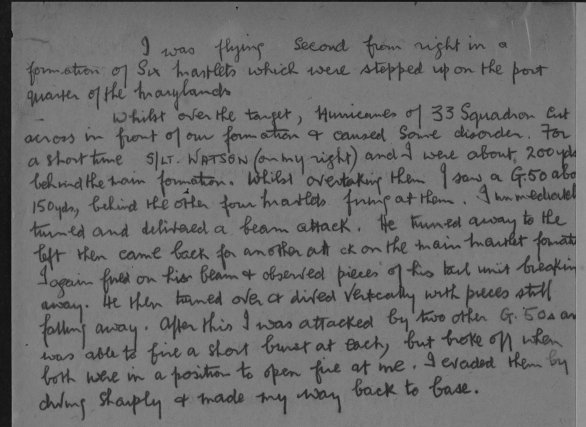 I was flying Second from right in a
formation of Six Martlets which were stepped up on the port
quarter of the Marylands
Whilst over the target, Hurricanes of 33 Squadron Cut
across in front of our formation & caused Some disorder. For
a short time S/LT. WATSON (on my right) and I were about 200 yds
behind the main formation. Whilst overtaking them I saw a G.50 abo
150yds, behind the other four Martlets firing at them. I immediatel
turned and delivered a beam attack. He turned away to the
left then came back for another att ck on the main Martlet formati
I again fired on his beam & observed pieces of his tail unit breakin
away. He then turned over & dived vertically with pieces still
falling away. After this I was attacked by two other G.50s an
was able to fire a short burst at each, but broke off when
both were in a position to open fire at me. I evaded them by
diving sharply & made my way back to base.